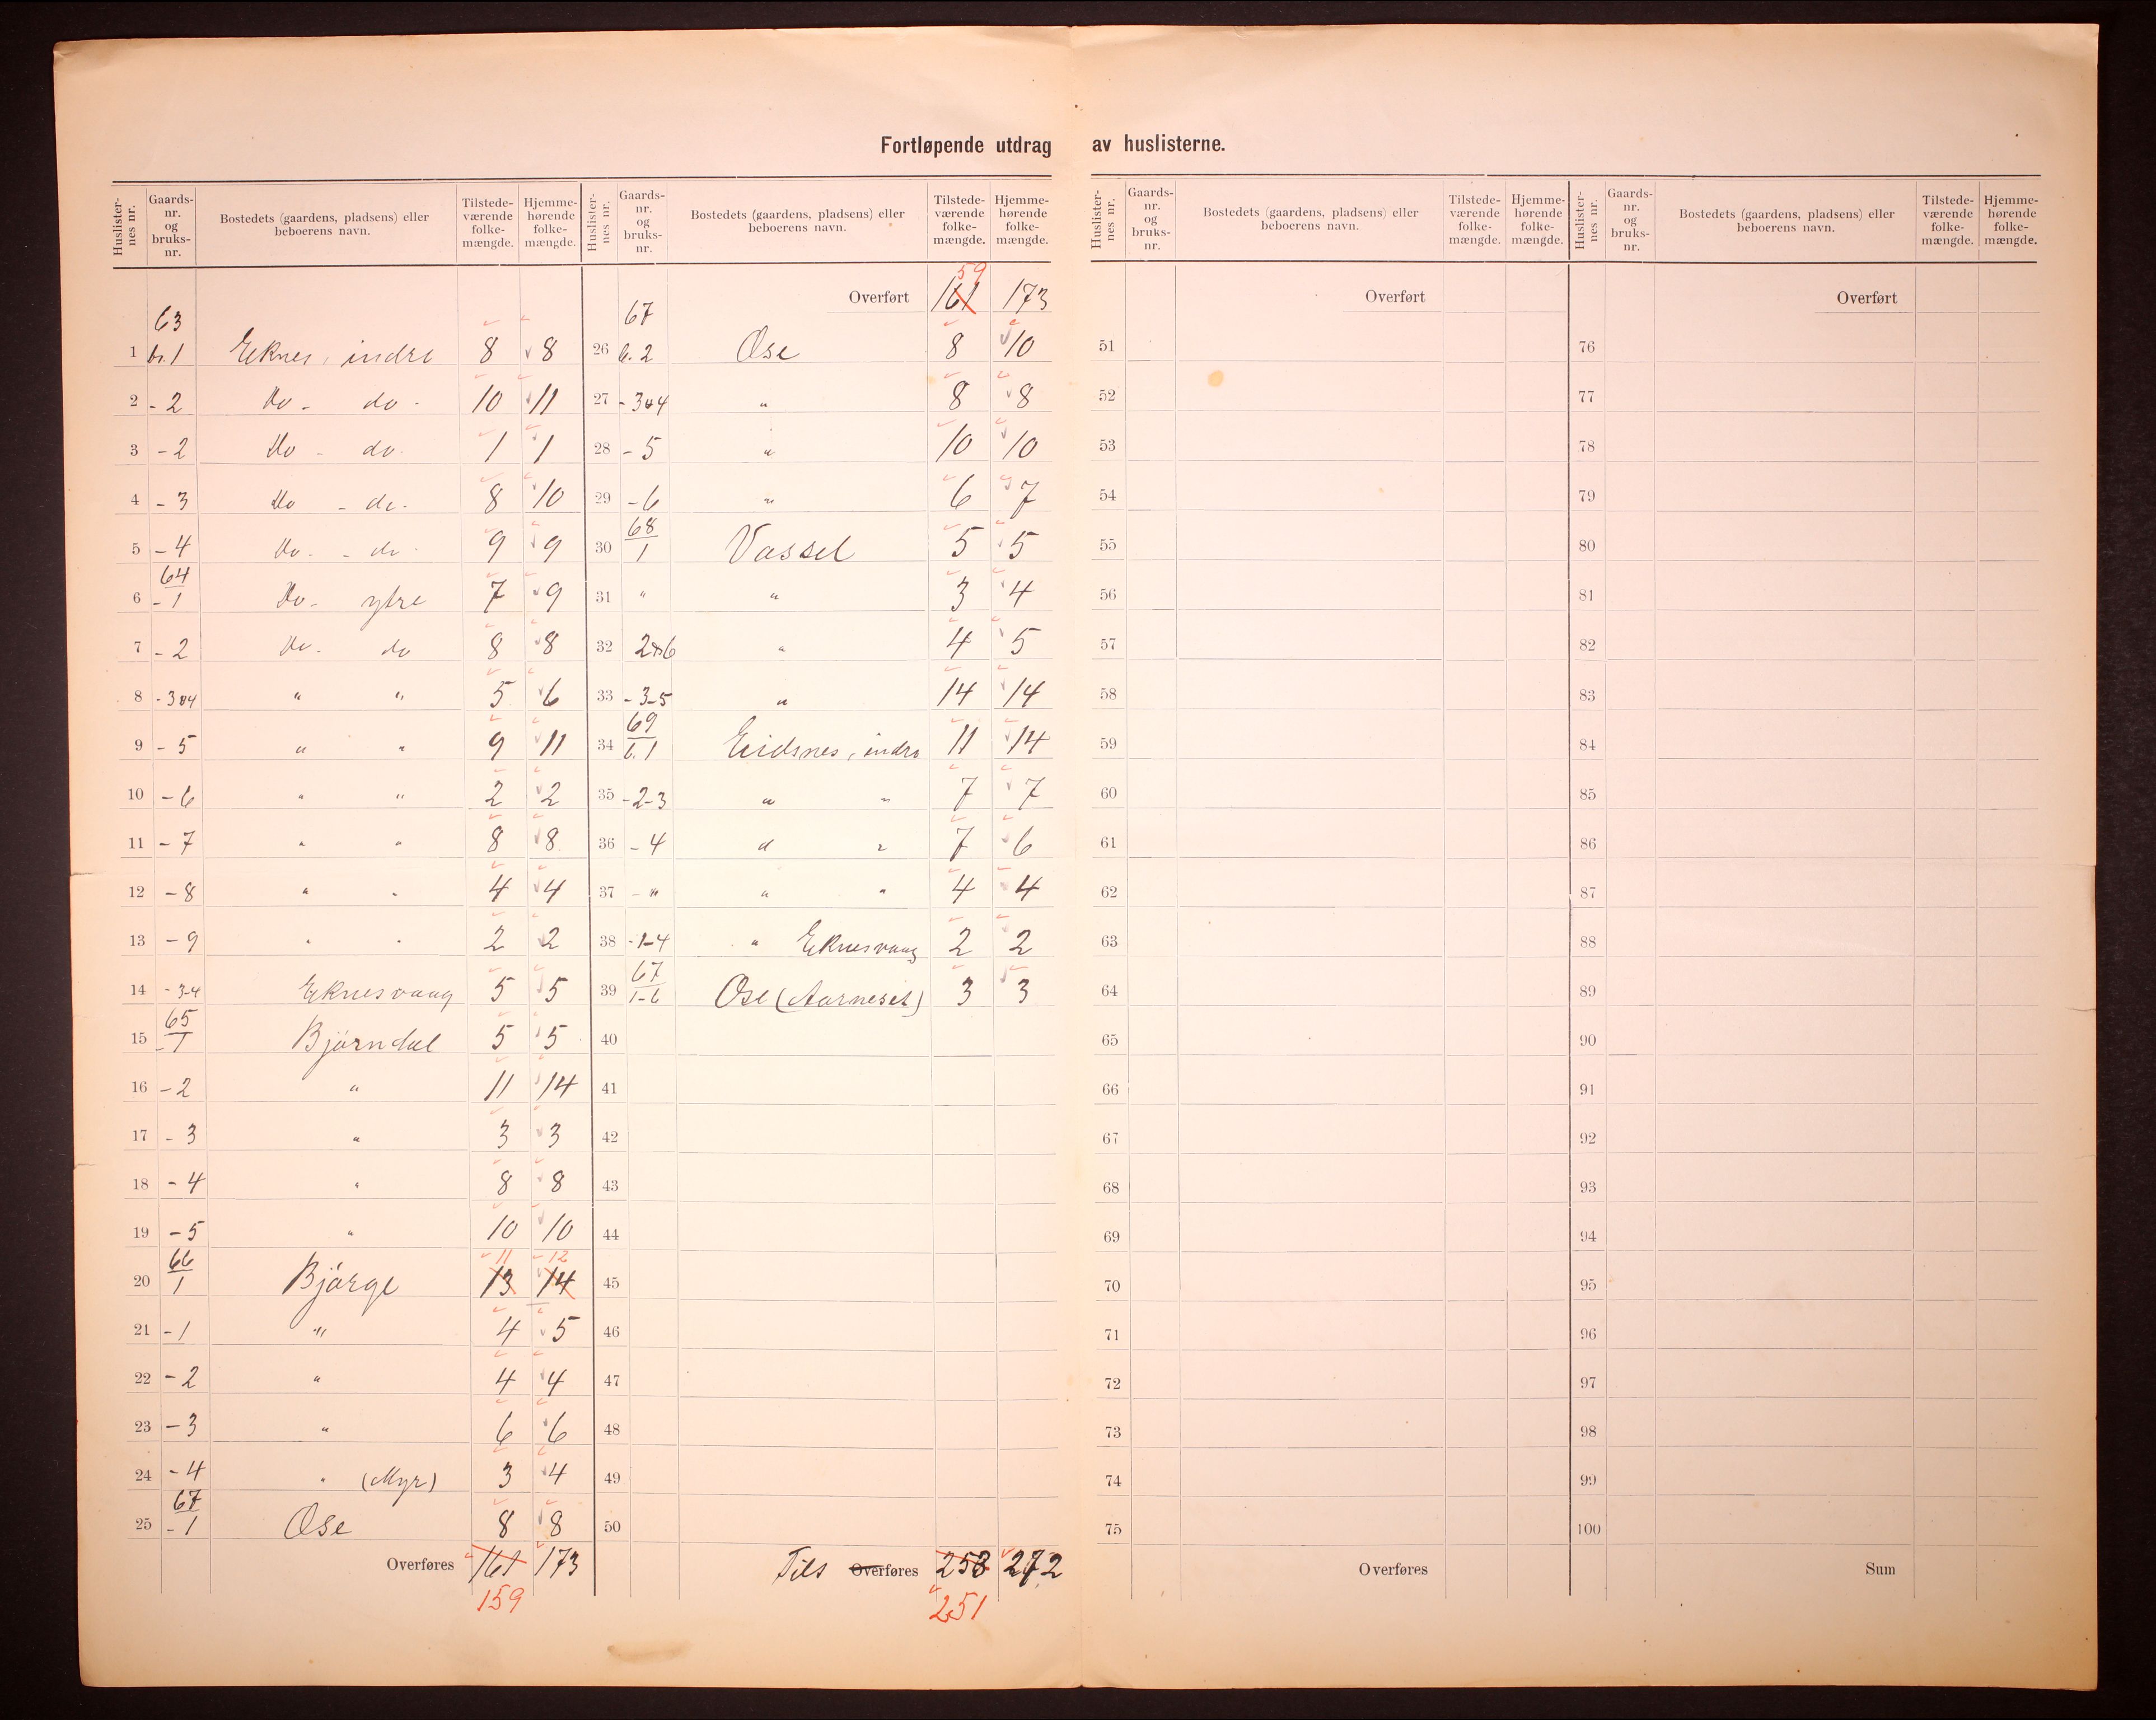 Fortløpende utdrag av huslisterne.
Huslisternes nr. Gaardsnr. og bruksnr. Bostedets (gaardens, pladsens) eller beboerens navn. Tilstedeværende folkemængde. Hjemmehørende folkemængde.
63
1 br. 1 Eknes, indre 8 8
2 - 2 Do - do - 10 11
3 - 2 Do - do. 1 1
4 - 3 Do - do. 8 10
5 - 4 Do. - do 9 9
64
6 - 1 Do - ytre 7 9
7 - 2 Do. do 8 8
8 - 3 o 4 " " 5 6
9 - 5 " " 9 11
10 - 6 " " 2 2
11 - 7 " " 8 8
12 - 8 " " 4 4
13 - 9 " " 2 2
14 - 3-4 Eknesvaag 5 5
65
15 - 1 Bjørndal 5 5
16 - 2 " 11 14
17 - 3 " 3 3
18 - 4 " 8 8
19 - 5 " 10 10
66 11 12
20 1 Bjørge 13 14
21 - 1 " 4 5
22 - 2 " 4 4
23 - 3 " 6 6
24 - 4 " (Myr) 3 4
67
25 - 1 Ose 8 8
Overføres 161 173
159
Huslisternes nr. Gaardsnr. og bruksnr. Bostedets (gaardens, pladsens) eller beboerens navn. Tilstedeværende folkemængde. Hjemmehørende folkemængde.
59
Overført 161 173
67
26 b. 2 Ose 8 10
27 - 3 o 4 " 8 8
28 - 5 " 10 10
29 - 6 " 6 7
68
30 1 Vassel 5 5
31 " " 3 4
32 2 6 " 4 5
33 - 3-5 " 14 14
69
34 b. 1 Eidsnes, indre 11 14
35 - 2-3 " " 7 7
36 - 4 " " 7 6
37 - " " " 4 4
38 - 1-4 " Eknesvaag 2 2
67
39 1-6 Ose (Aarneset) 3 3
40
41
42
43
44
45
46
47
48
49
50
Tils Overføres 253 272
251
Huslisternes nr. Gaardsnr. og bruksnr. Bostedets (gaardens, pladsens) eller beboerens navn. Tilstedeværende folkemængde. Hjemmehørende folkemængde.
Overført
51
52
53
54
55
56
57
58
59
60
61
62
63
64
65
66
67
68
69
70
71
72
73
74
75
Overføres
Huslisternes nr. Gaardsnr. og bruksnr. Bostedets (gaardens, pladsens) eller beboerens navn. Tilstedeværende folkemængde. Hjemmehørende folkemængde.
Overført
76
77
78
79
80
81
82
83
84
85
86
87
88
89
90
91
92
93
94
95
96
97
98
99
100
Sum